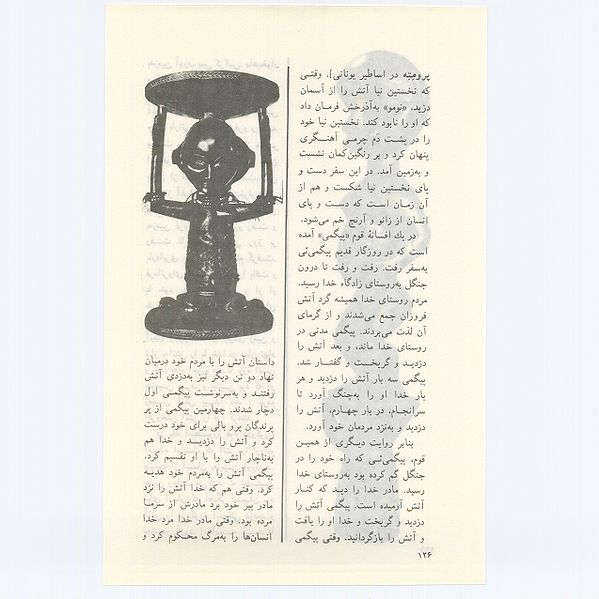 پرومِتِه در اساطیر یونانی]. وقتـی
که نخستین نیا آتش را از آسمان
دزید، «نومو» به‌آذرخش فرمان داد
که او را نابود کند. نخستین نیا خود
را در پشت دَم چرمـی آهنـگری
پنهان کرد و بر رنگین‌کمان نشست
و به‌زمین آمد. در این سفر دست و
پای نخستین نیا شکست و هم از
آن زمان اسـت که دسـت و پای
انسان از زانو و آرنج خم می‌شود.
در یك افسانهٔ قوم «پیگمی» آمده
است که در روزگار قدیم پیگمی‌ئی
به‌سفر رفت. رفت و رفت تا درون
جنگل به‌روستای زادگاه خدا رسید.
مردم روستای خدا همیشه گرد آتش
فروزان جمع می‌شدند و از گرمای
آن لذت می‌بردند. پیگمی مدتی در
روستای خدا ماند، و بعد آتش را
دزدیـد و گریخـت و گفتـار شد.
پیگمی سه بار آتش را دزدید و هر
بار خدا او را به‌چنگ آورد تا
سرانجـام، در بار چهـارم، آتش را
دزدید و به‌نزد مردمان خود آورد.
بنابر روایت دیگری از همیـن
قوم، پیگمی‌ئی که راه خود را در
جنگل گم کرده بود به‌روستای خدا
رسید. مادر خدا را دیـد که کنـار
آتش آرمیده است. پیگمی آتش را
دزدید و گریخت و خدا او را یافت
و آتش را بازگردانید. وقتی پیگمی
داستان آتش را با مردم خود درمیان
نهاد دو تن دیگر نیز به‌دزدی آتش
رفتنـد و به‌سرنوشـت پیگمـی اول
دچار شدند. چهارمین پیگمی از پر
پرندگان پرو بالی برای خود درست
کرد و آتش را دزدیـد و خدا هم
به‌ناچار آتش را با او تقسیم کرد.
پیگمی آتش را به‌مردم خود هدیـه
کرد. وقتی هم که خدا آتش را نزد
مادر پیر خود برد مادرش از سرمـا
مرده بود. وقتی مادر خدا مرد خدا
انسان‌ها را به‌مرگ محکوم کرد و
۱۲۶